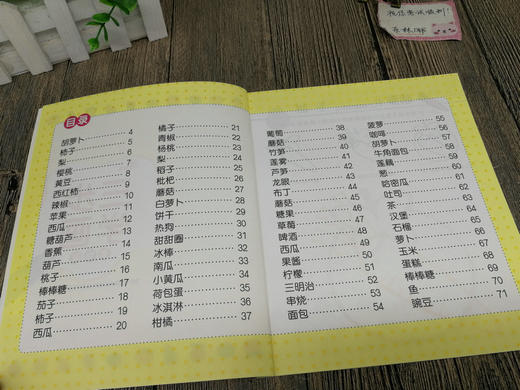 目录
胡萝卜……4
柿子……5
梨……6
樱桃……7
黄豆……8
西红柿……9
辣椒……10
苹果……11
西瓜……12
糖葫芦……13
香蕉……14
葫芦……15
桃子……16
棒棒糖……17
茄子……18
柿子……19
西瓜……20
橘子……21
青椒……22
杨桃……23
梨……24
稻子……25
枇杷……26
蘑菇……27
白萝卜……28
饼干……29
热狗……30
甜甜圈……31
冰棒……32
南瓜……33
小黄瓜……34
荷包蛋……35
冰淇淋……36
柑橘……37
葡萄……38
蘑菇……39
竹笋……40
莲雾……41
芦笋……42
龙眼……43
布丁……44
蘑菇……45
糖果……46
草莓……47
啤酒……48
西瓜……49
果酱……50
柠檬……51
三明治……52
串烧……53
面包……54
菠萝……55
咖啡……56
胡萝卜……57
牛角面包……58
莲藕……59
葱……60
哈密瓜……61
吐司……62
茶……63
汉堡……64
石榴……65
萝卜……66
玉米……67
蛋糕……68
棒棒糖……69
鱼……70
豌豆……71